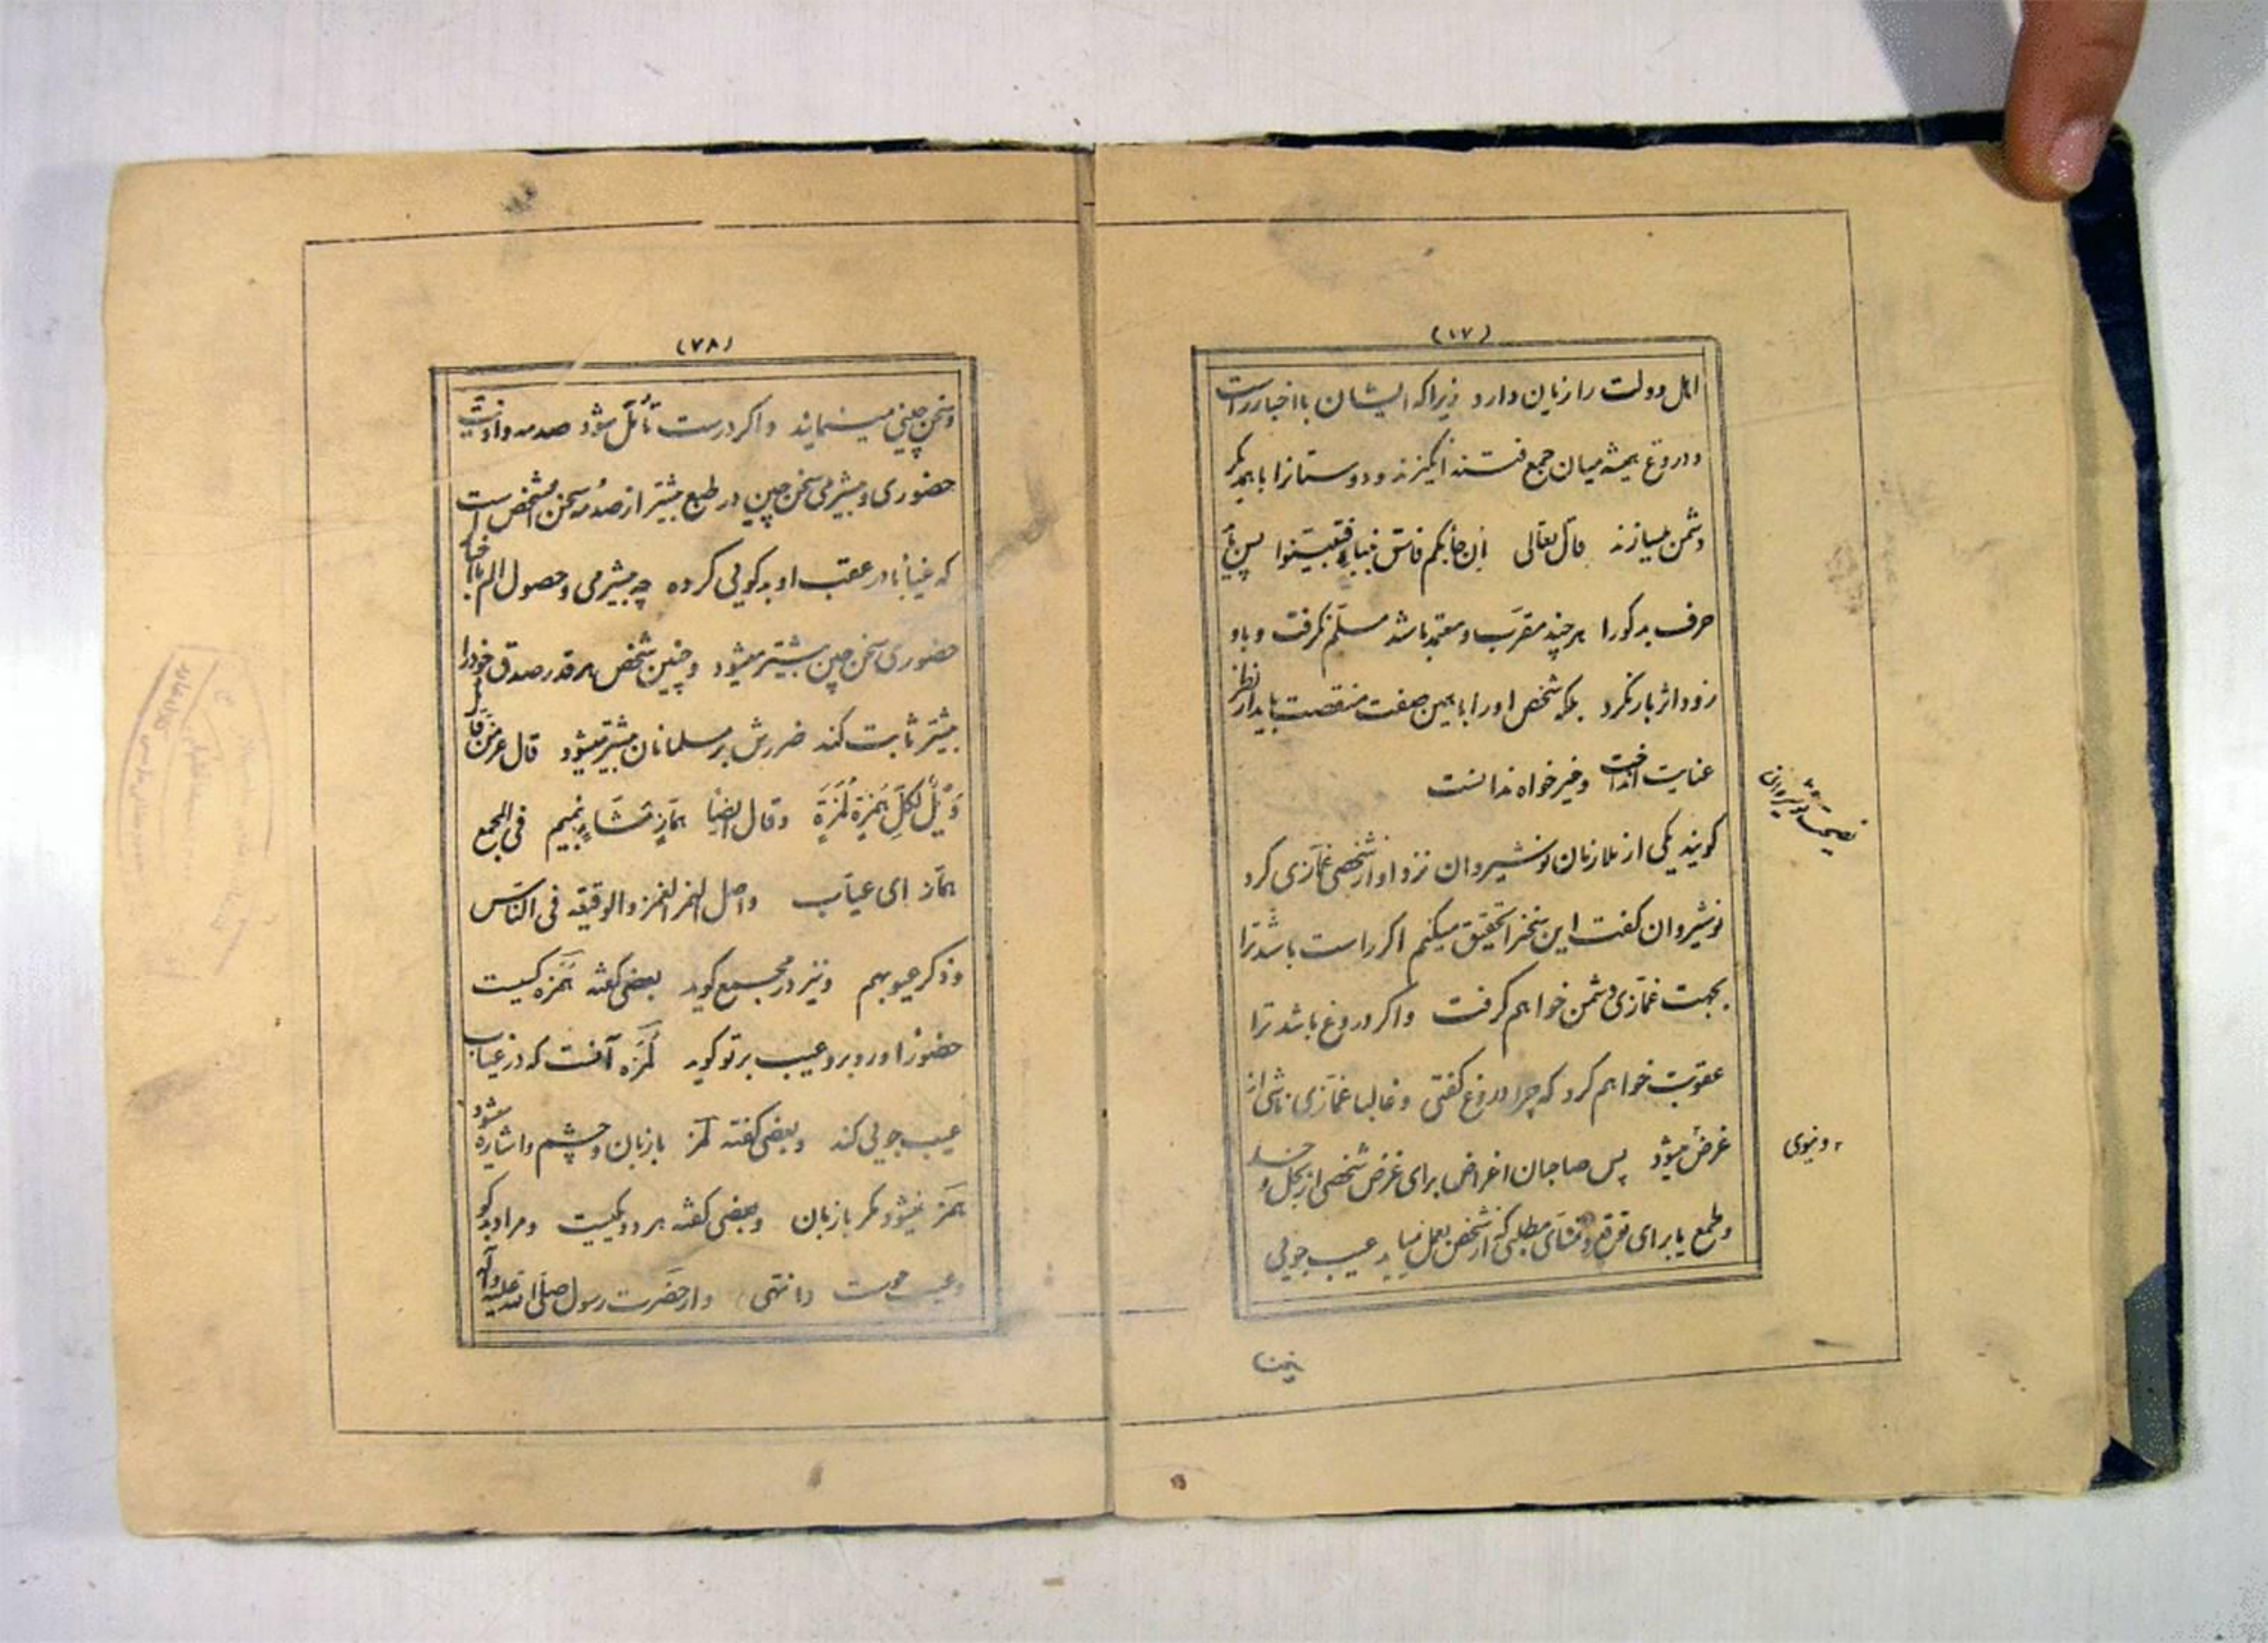 (۱۷)
اهل دولت را زیان دارد زیراکه ایشان با اخبار راست
و دروغ همیشه میان جمع فتنه انگیزند و دوستانرا با همدیگر
دشمن میسازند قال تعالی ان جائکم فاسق بنباء فتبینوا پس
حرف بدگورا هر چند مقرب و معتمد باشد مسلم نگرفت و باو
زود اثر بار نکرد بلکه شخص اورا با همین صفت منقصت باید از نظر
عنایت انداخت و خیرخواه ندانست
گویند یکی از ملازمان نوشیروان نزد او از شخصی غمازی کرد
نوشیروان گفت این سخنرا تحقیق میکنم اگر راست باشد ترا
بجهت غمازی دشمن خواهم گرفت و اگر دروغ باشد ترا
عقوبت خواهم کرد که چرا دروغ گفتی و غالبا غمازی ناشی از
غرض میشود پس صاحبان اغراض برای غرض شخصی از بخل و حسد
و طمع یا برای توقع و تمنای مطلبی که از شخص بعمل نیاید عیب جویی
نصیحت نوشیروان
دنیوی
(۷۸)
و سخن چینی مینمایند و اگر درست تأمل شود صدمه و اذیت
حضوری و بیشرمی سخن چین در طبع بیشتر از صدمه سخن آنشخص است
که غیابا در عقب او بدگویی کرده چه بیشرمی و حصول الم با اخبار
حضوری سخن چین بیشتر میشود و چنین شخص هر قدر صدق خود را
بیشتر ثابت کند ضررش بر مسلمانان بیشتر میشود قال عز من قائل
وَیْلٌ لِکُلِّ هُمَزَةٍ لُمَزَةٍ و قال ایضا هَمّازٍ مَشّاءٍ بِنَمیم فی المجمع
همّاز ای عیاب و اصل الهمز الغمز و الوقیعه فی الناس
و ذکر عیوبهم و نیز در مجمع گوید بعضی گفته همزه کسیست
حضورًا و روبرو عیب بر تو گوید لمزه آنست که در غیاب
عیب جویی کند و بعضی گفته لمز با زبان و چشم و اشاره میشود
همز نمیشود مگر با زبان و بعضی گفته هر دو یکیست و مراد بدگو
و عیب جوست (انتهی) و از حضرت رسول صلی الله علیه وآله